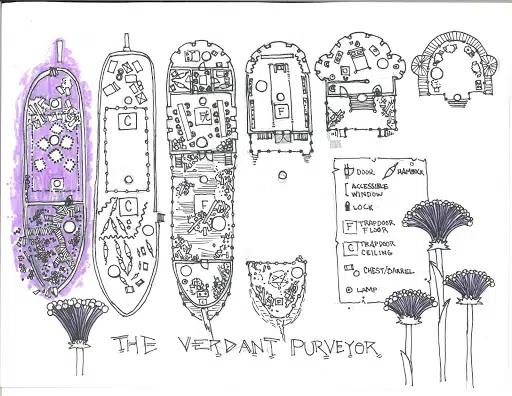 C
C
F
F
DOOR
HAMMOCK
ACCESSIBLE
WINDOW
LOCK
F TRAPDOOR
FLOOR
C TRAPDOOR
CEILING
CHEST/BARREL
LAMP
THE VERDANT PURVEYOR